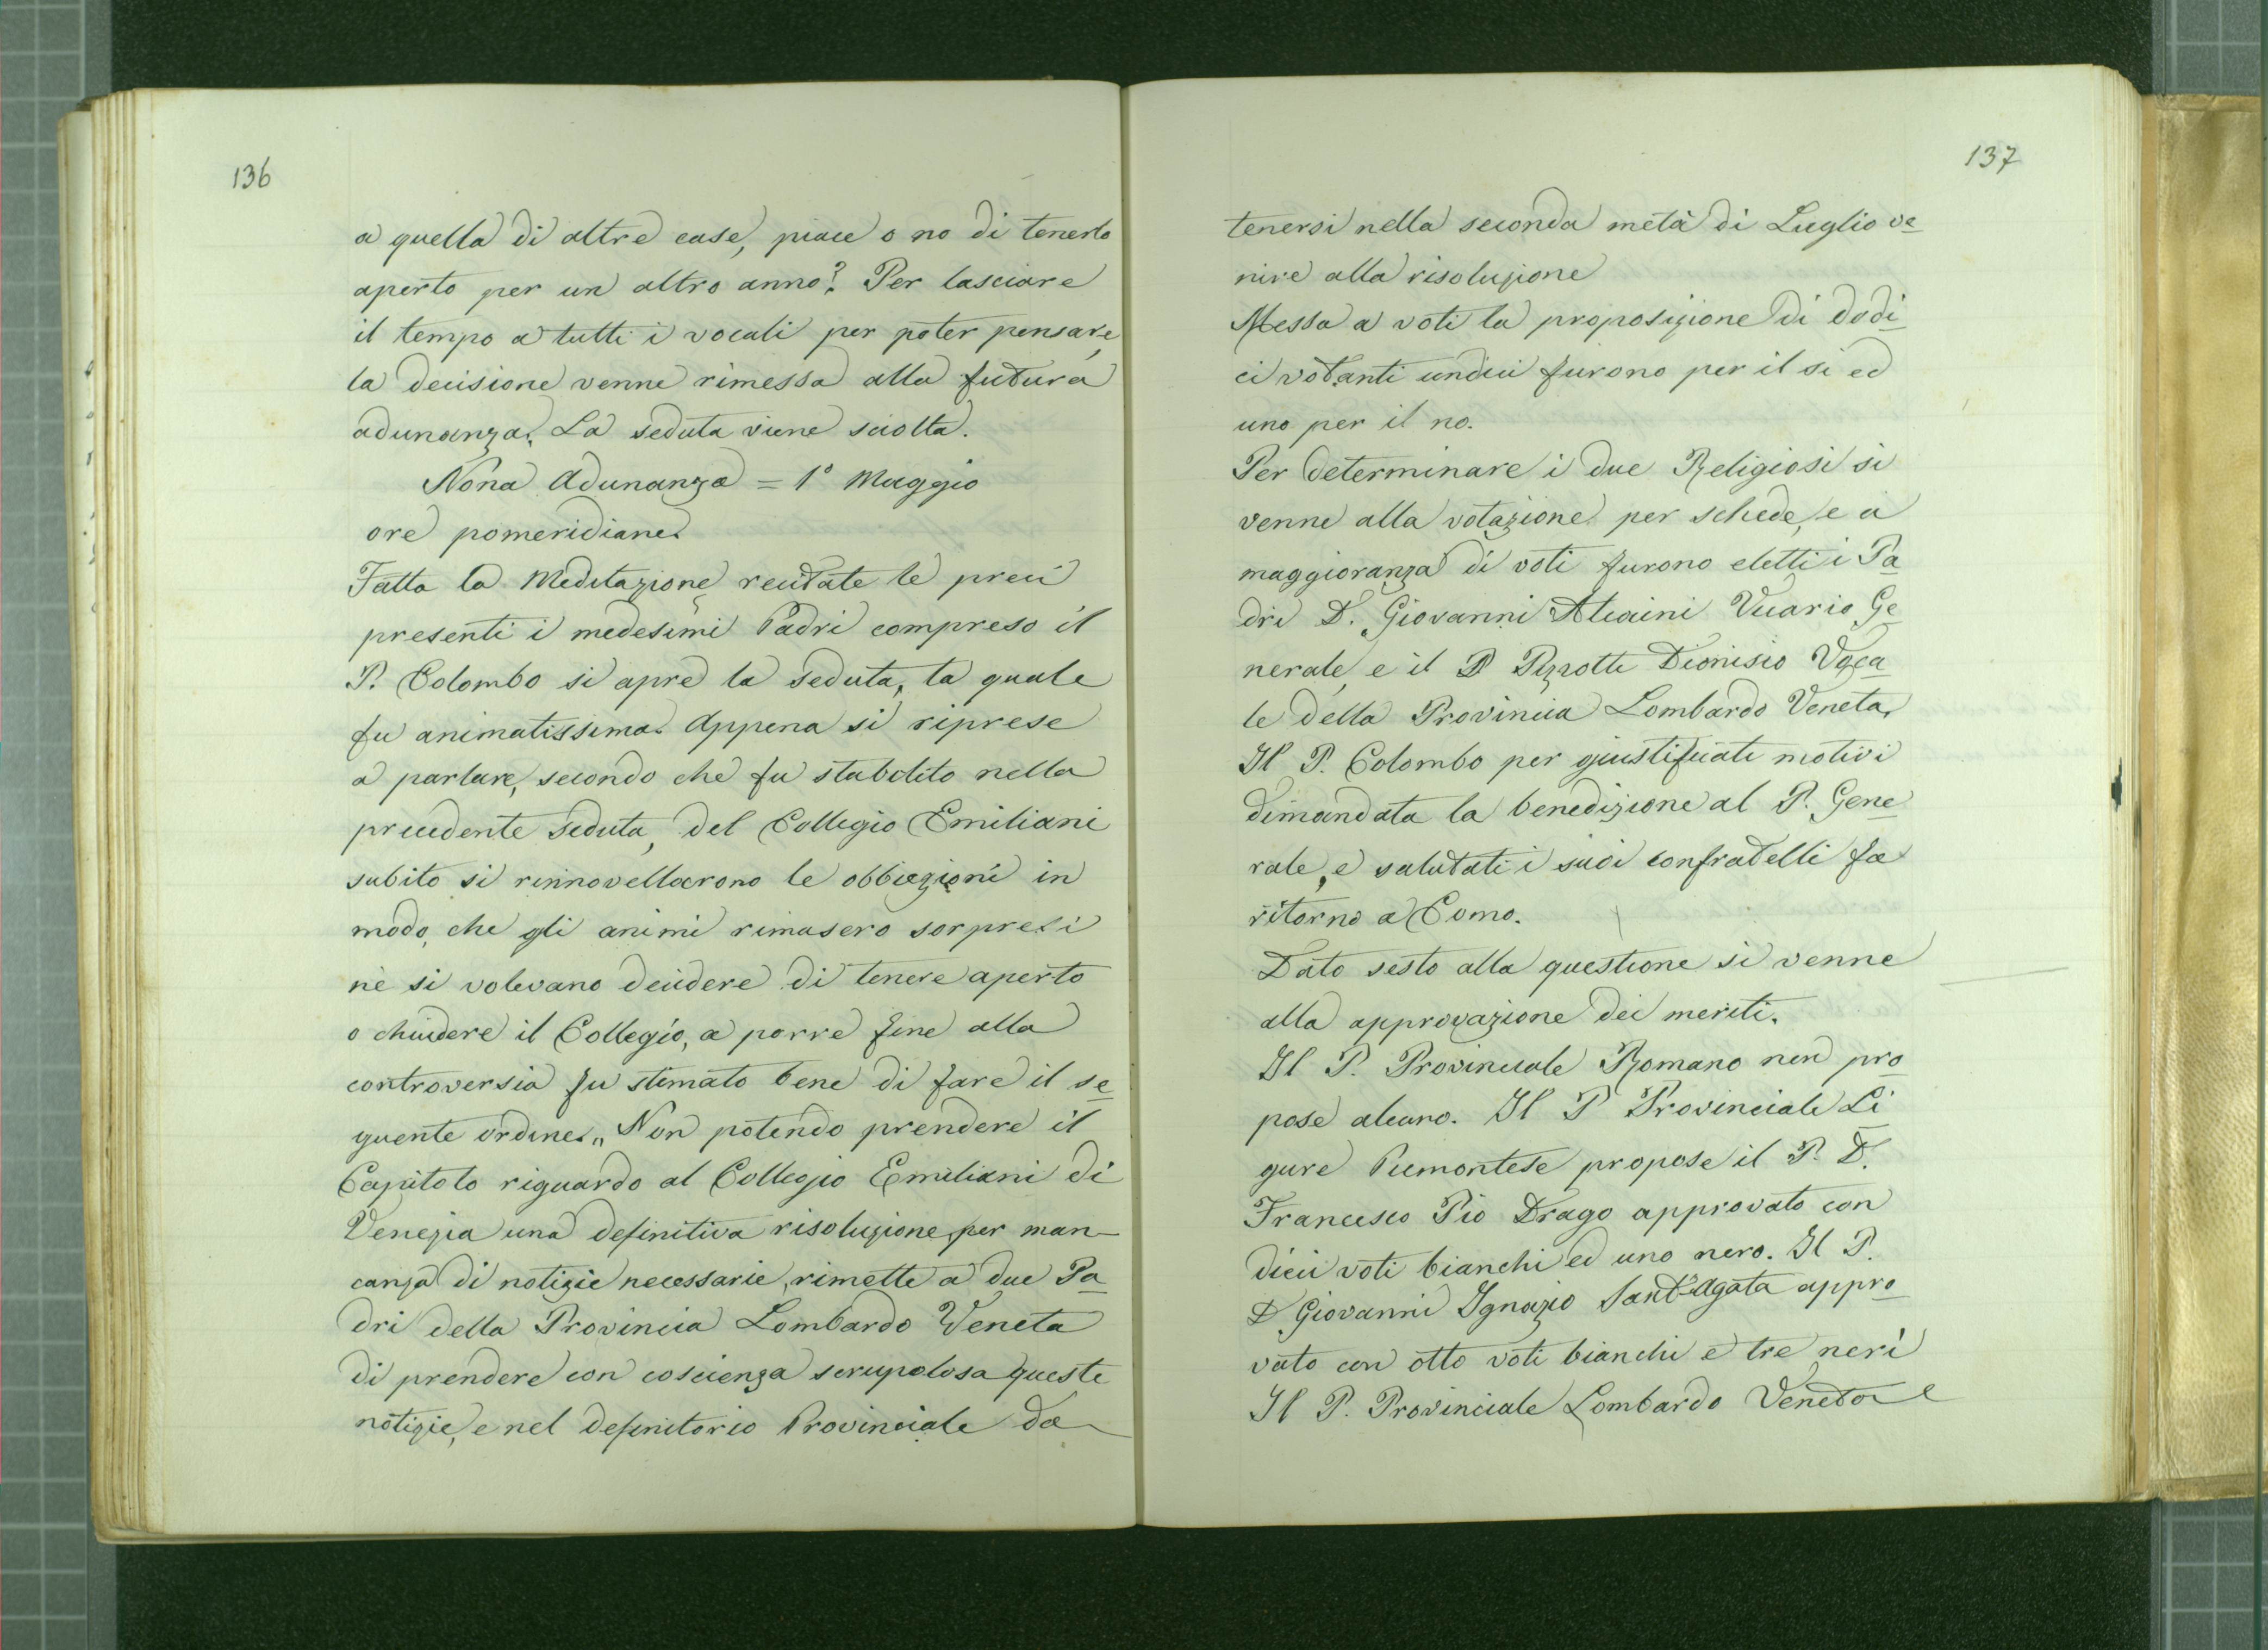 136
a quella di altre case, piace o no di tenerlo
aperto per un altro anno? Per lasciare
il tempo a tutti i vocali per poter pensare,
la decisione venne rimessa alla futura
adunanza. La seduta viene sciolta.
Nona Adunanza = 1° Maggio
ore pomeridiane.
Fatta la Meditazione recitate le preci
presenti i medesimi Padri compreso il
P. Colombo si apre la seduta, la quale
fu animatissima. Appena si riprese
a parlare, secondo che fu stabilito nella
precedente seduta, del Collegio Emiliani
subito si rinnovellarono le obbiezioni in
modo, che gli animi rimasero sorpresi
nè si volevano decidere di tenere aperto
o chiudere il Collegio, a porre fine alla
controversia fu stimato bene di fare il se
guente ordine. „ Non potendo prendere il
Capitolo riguardo al Collegio Emiliani di
Venezia una definitiva risoluzione, per man-
canza di notizie necessarie, rimette a due Pa
dri della Provincia Lombardo Veneta
di prendere con coscienza scrupolosa queste
notizie, e nel definitorio Provinciale da
137
tenersi nella seconda metà di Luglio ve
nire alla risoluzione
Messa a voti la proposizione di dodi
ci votanti undici furono per il si ed
uno per il no.
Per determinare i due Religiosi si
venne alla votazione per schede, e a
maggioranza di voti furono eletti i Pa
dri D. Giovanni Alcaini Vicario Ge
nerale, e il P Pizzotti Dionisio Voca
le della Provincia Lombardo Veneta,
Il P. Colombo per giustificati motivi
dimandata la benedizione al P. Gene
rale, e salutati i suoi confratelli fa
ritorno a Como.
Dato sesto alla questione si venne
alla approvazione dei meriti.
Il P. Provinciale Romano non pro
pose alcuno. Il P Provinciale Li
gure Piemontese propose il P. D.
Francesco Pio Drago approvato con
dieci voti bianchi ed uno nero. Il P.
D Giovanni Ignazio Sant'Agata appro
vato con otto voti bianchi e tre neri
Il P. Provinciale Lombardo Veneto e